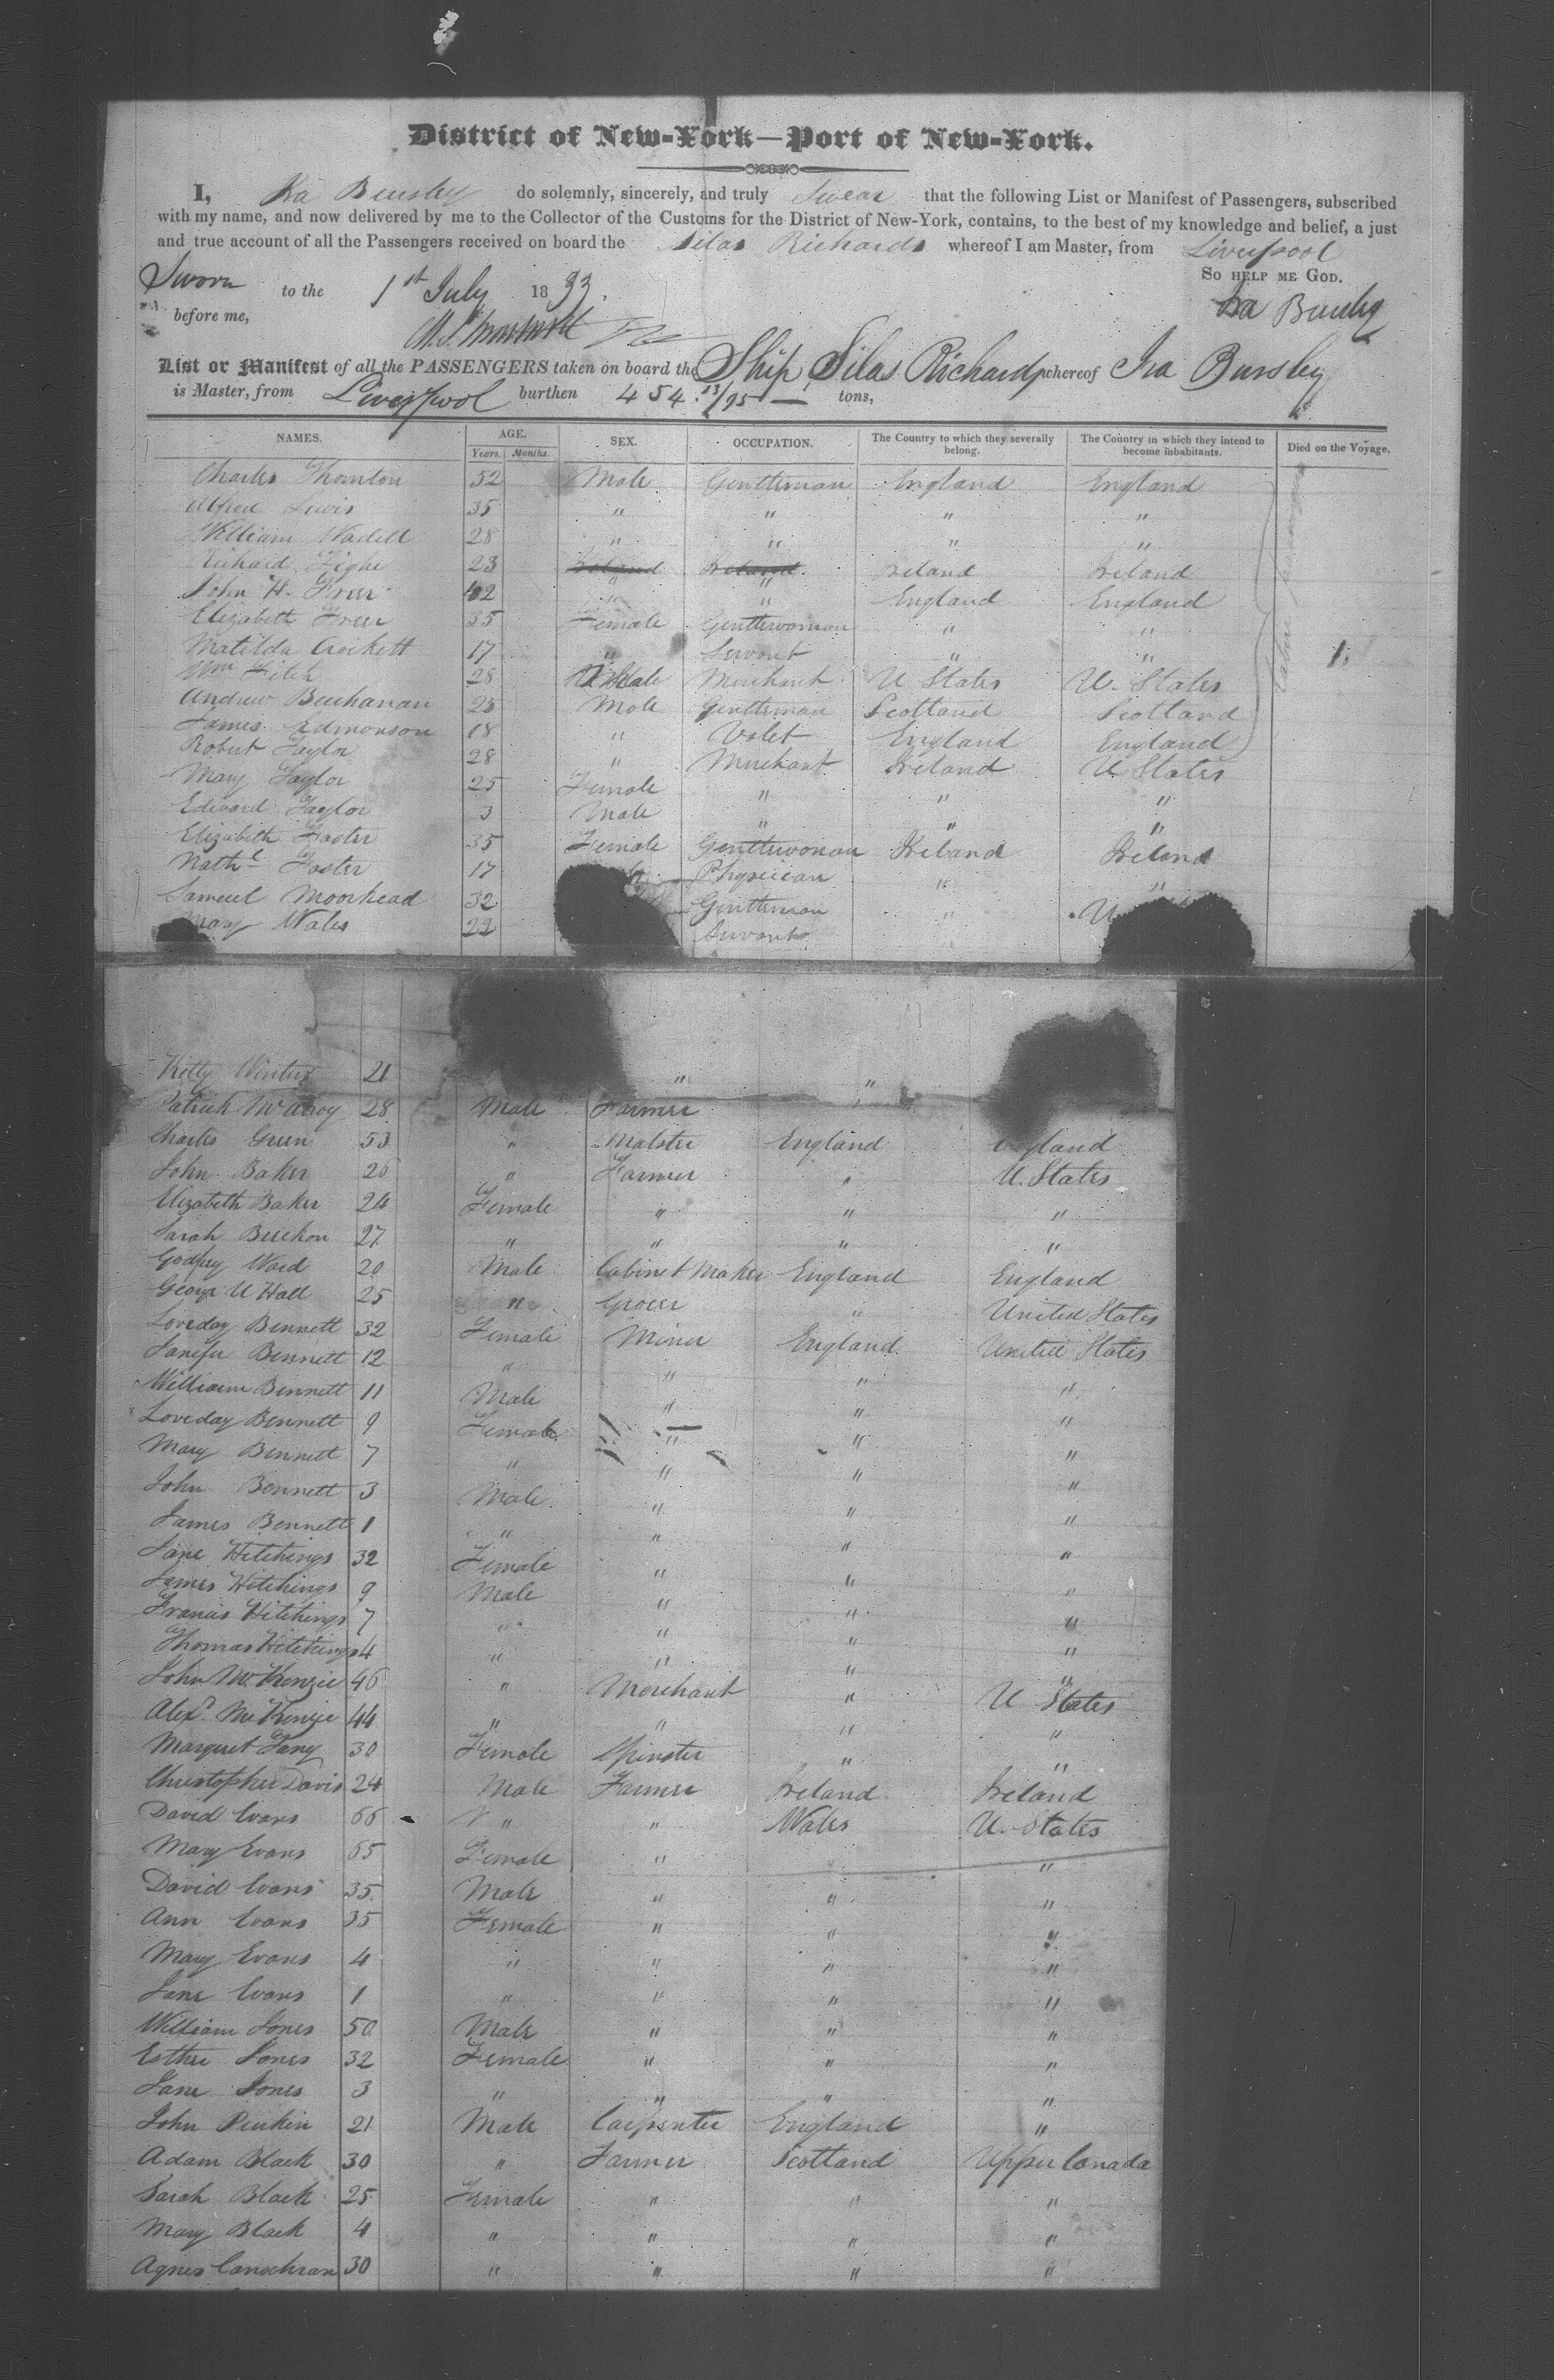 District of New-York—Port of New-York.
I, Ira Bursley do solemnly, sincerely, and truly Swear that the following List or Manifest of Passengers, subscribed
with my name, and now delivered by me to the Collector of the Customs for the District of New-York, contains, to the best of my knowledge and belief, a just
and true account of all the Passengers received on board the Silas Richards whereof I am Master, from Liverpool
So HELP ME GOD.
Sworn to the 1st July 1833.
before me,
Ira Bursley
List or Manifest of all the PASSENGERS taken on board the Ship Silas Richards whereof Ira Bursley
is Master, from Liverpool burthen 454 13/95 — tons,
NAMES. AGE. SEX. OCCUPATION. The Country to which they severally belong. The Country in which they intend to become inhabitants. Died on the Voyage.
Years. Months.
Charles Thornton 52 Male Gentleman England England
Alfred Lewis 35 " " " "
William Wadell 28 " " " "
Richard Tighe 23 Ireland Ireland Ireland Ireland
John H. Freer " " England England
Elizabeth Freer 35 Female Gentlewoman " "
Matilda Crockett 17 " Servant " " 1.
Wm Fitch 28 Male Merchant U States U. States
Andrew Buchanan 23 Male Gentleman Scotland Scotland
James Edmonson 18 " Valet England England
Robert Taylor 28 " Merchant Ireland U States
Mary Taylor 25 Female " " "
Edward Taylor 3 Male " " "
Elizabeth Foster 35 Female Gentlewoman Ireland Ireland
Nathl Foster 17 Physician " "
Samuel Moorhead 32 Gentleman " U
Mary Wales 22 Servant
Kitty Winters 21 " "
Patrick McAvoy 28 Male Farmer "
Charles Green 53 " Malster England England
John Baker 26 " Farmer " U. States
Elizabeth Baker 24 Female " " "
Sarah 27 " " " "
Godfrey Ward 20 Male Cabinet Maker England England
George U Hall 25 " Grocer " United States
Loveday Bennett 32 Female Miner England United States
Jenifer Bennett 12 " " " "
William Bennett 11 Male " " "
Loveday Bennett 9 Female " " "
Mary Bennett 7 " " " "
John Bennett 3 Male " " "
James Bennett 1 " " " "
Jane Hitchings 32 Female " " "
James Hitchings 9 Male " " "
Francis Hitchings 7 " " " "
Thomas Hitchings 4 " " " "
John McKenzie 46 " Merchant " U States
Alexr McKenzie 44 " " " "
Margaret 30 Female Spinster " "
Christopher Davis 24 Male Farmer Ireland Ireland
David Evans 66 " " Wales U. States
Mary Evans 65 Female " " "
David Evans 35 Male " " "
Ann Evans 35 Female " " "
Mary Evans 4 " " " "
Jane Evans 1 " " " "
William Jones 50 Male " " "
Esther Jones 32 Female " " "
Jane Jones 3 " " " "
John 21 Male Carpenter England "
Adam Black 30 " Farmer Scotland Upper Canada
Sarah Black 25 Female " " "
Mary Black 4 " " " "
Agnes 30 " " " "